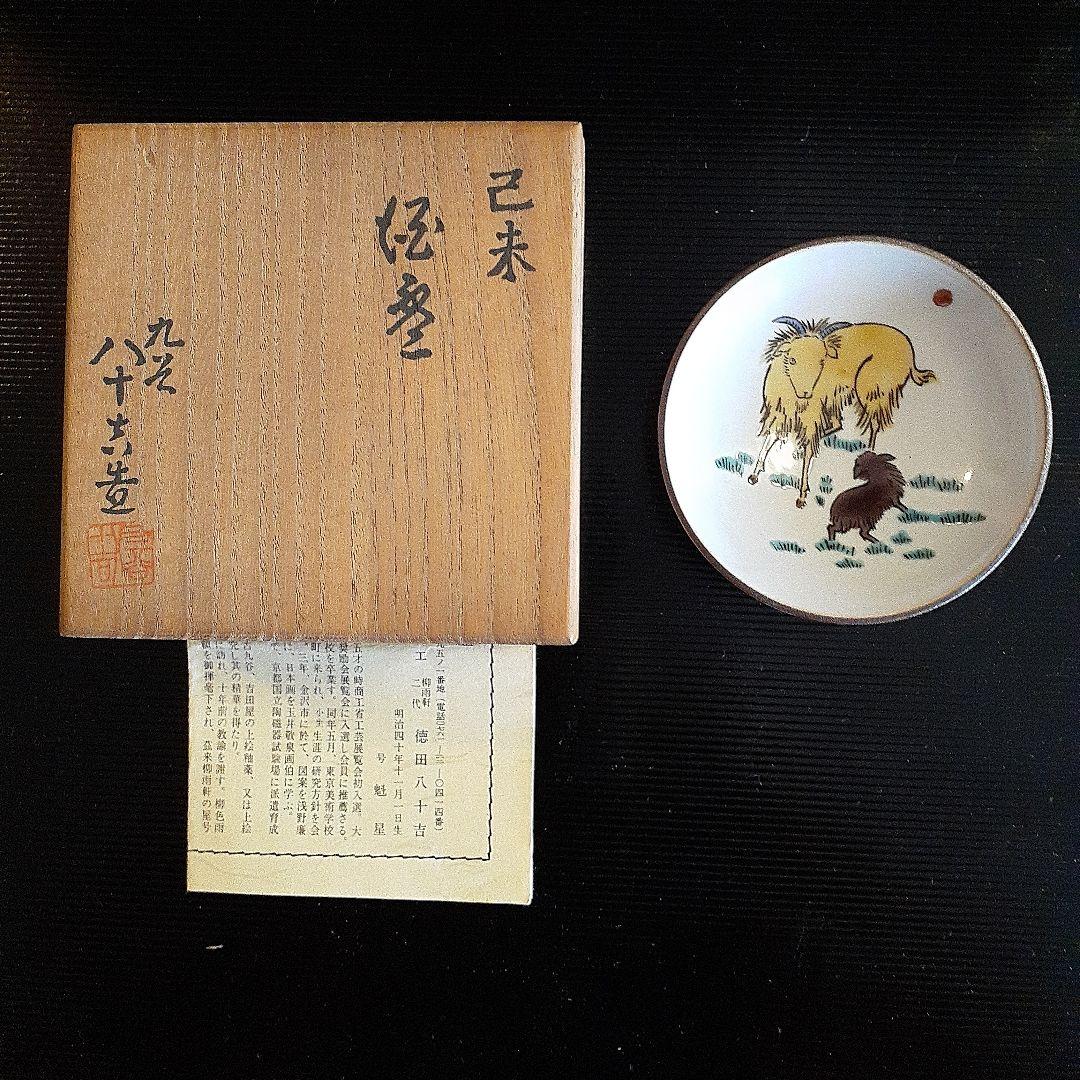 己未
酒盃
九谷
八十吉造
九五ノ一番地(電話〇七六一―二二―〇四一四番)
柳雨軒
工 二代 徳田八十吉
明治四十年十一月一日生
号 魁星
五才の時商工省工芸展覧会初入選、大
奨励会展覧会に入選し会員に推薦さる。
校を卒業す。同年五月、東京美術学校
町に来られ、小生生涯の研究方針を会
三年、金沢市に於て、図案を浅野廉
に、日本画を玉井敬泉画伯に学ぶ。
て、京都国立陶磁器試験場に派遣育成
古九谷、吉田屋の上絵釉薬、又は上絵
究し其の精華を得たり。
に訪れ、十年前の教諭を謝す。柳色雨
額を御揮毫下され、益来柳雨軒の屋号